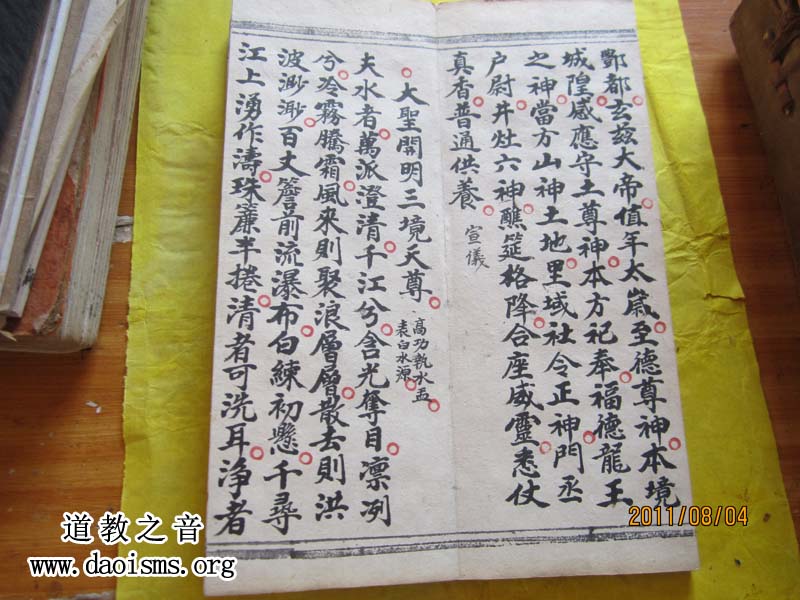 酆都玄玆大帝值年太歲至德尊神本境
城隍感應守土尊神本方祀奉福德龍王
之神當方山神土地里域社令正神門丞
户尉井灶六神醮筵格降合座威靈悉仗
真香普通供養 宣儀
大聖開明三境天尊 高功執水盂
表白水源
夫水者萬派澄清千江兮含光奪目凛冽
兮冷霧騰霜風來則聚浪層層散去則洪
波渺渺百丈簷前流瀑布白練初懸千尋
江上湧作濤珠簾半捲清者可洗耳净者
2011/08/04
道教之音
www.daoisms.org